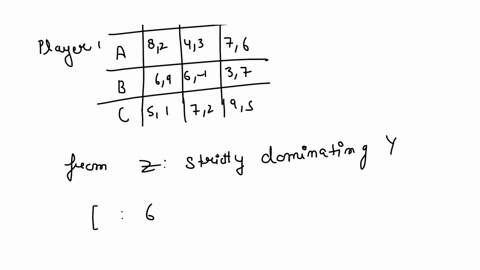 Player 1
A 8,2 4,3 7,6
B 6,9 6,-1 3,7
C 5,1 7,2 9,5
from Z: strictly dominating Y
[ : 6